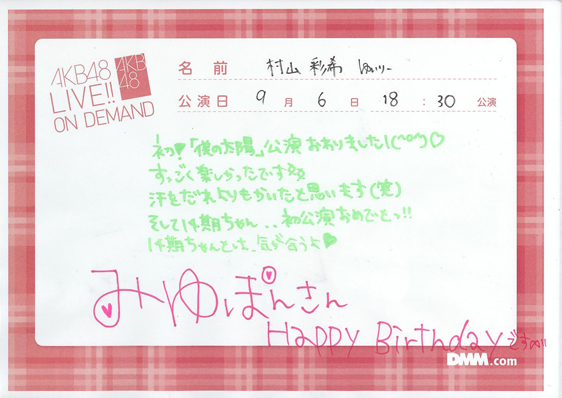 AKB48
LIVE!!
ON DEMAND
AKB
48
名前 村山 彩希 ゆいりー
公演日 9月6日 18:30公演
初!「僕の太陽」公演おわりました!(^o^)♡
すっごく楽しかったです
汗をだれよりもかいたと思います(笑)
そして14期ちゃん..初公演おめでとっ!!
14期ちゃんとは、気が合うよ♥
みゆぽんさん
Happy Birthdayです
DMM.com